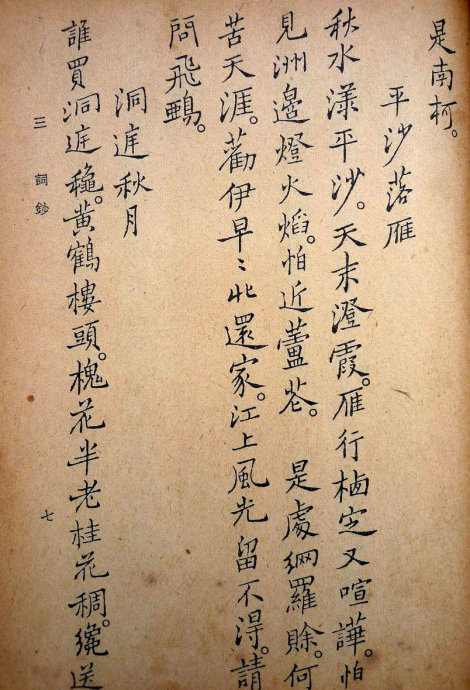 是南柯。
平沙落雁
秋水漾平沙。天末澄霞。雁行栖定又喧譁。怕
見洲邊燈火焰。怕近蘆花。 是處網羅賒。何
苦天涯。勸伊早〻北還家。江上風光留不得。請
問飛鵶。
洞庭秋月
誰買洞庭穐。黃鶴樓頭。槐花半老桂花稠。纔送
三 詞鈔 七